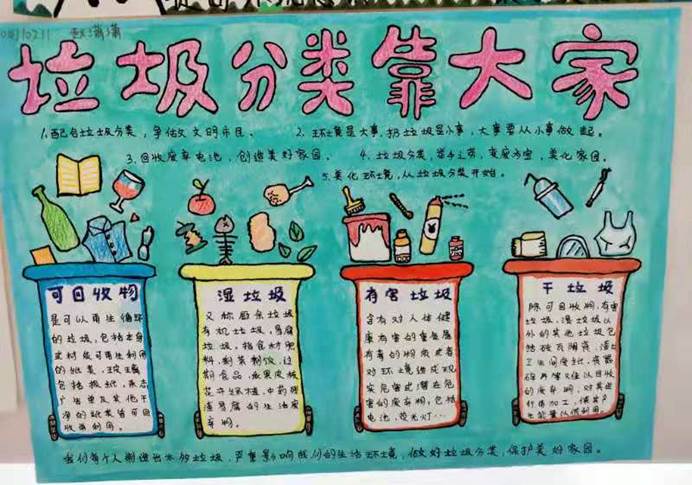 垃圾分类靠大家
1.配合垃圾分类,争做文明市民、
2.环境是大事,扔垃圾是小事,大事要从小事做起。
3.回收废弃电池,创造美好家园。
4.垃圾分类,举手之劳,变废为宝,美化家园。
5.美化环境,从垃圾分类开始。
可回收物
是可以再生循环
的垃圾,包括本身
或材质可再生利用
的纸类、玻璃
包括报纸、杂志
广告单及其他干
净的纸类皆可回
收再利用。
湿垃圾
又称厨余垃圾
有机垃圾,易腐
垃圾,指食材废
料,剩菜剩饭,过
期食品,瓜果皮核
花卉绿植,中药药
渣等易腐的生活废
弃物。
有害垃圾
含有对人体健
康有害的重金属
有毒的物质或者
对环境造成现
实危害或潜在危
害的废弃物,包括
电池,荧光灯...
干垃圾
除可回收物,有害
垃圾,湿垃圾以
外的其他垃圾包
括砖瓦陶瓷,渣土
卫生间废纸,瓷器
等难以回收
的废弃物,